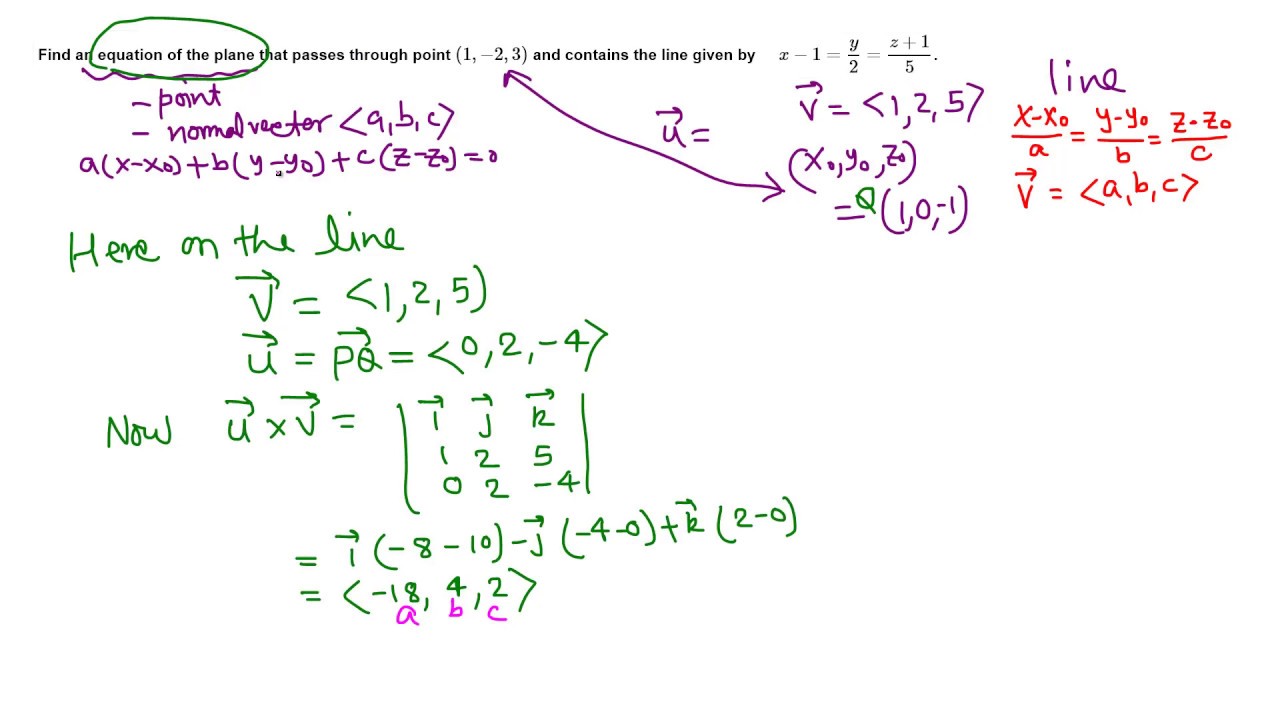 Find an equation of the plane that passes through point (1, −2, 3) and contains the line given by x − 1 = y/2 = z+1/5.
– point
– normal vector <a, b, c>
a(x-x₀)+b(y-y₀)+c(z-z₀)=0
u⃗ =
v⃗ = <1, 2, 5>
(x₀, y₀, z₀)
= Q(1, 0, -1)
line
x-x₀/a = y-y₀/b = z-z₀/c
v⃗ = <a, b, c>
Here on the line
v⃗ = <1, 2, 5)
u⃗ = PQ⃗ = <0, 2, -4>
Now u⃗ x v⃗ = | i⃗ j⃗ k⃗ |
1 2 5
0 2 -4
= i⃗ (-8-10) - j⃗ (-4-0) + k⃗ (2-0)
= <-18, 4, 2>
a b c